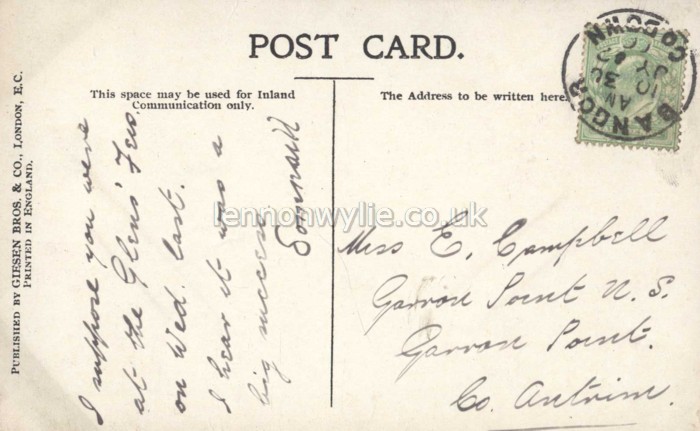 POST CARD.
This space may be used for Inland
Communication only.
The Address to be written here.
PUBLISHED BY GIESEN BROS. & CO., LONDON, E.C.
PRINTED IN ENGLAND.
BANGOR
CO DOWN
lennonwylie.co.uk
I suppose you were
at the Glens' Feis
on Wed. last.
I hear it was a
big success
Miss E. Campbell
Garron Point N. S.
Garron Point.
Co. Antrim.